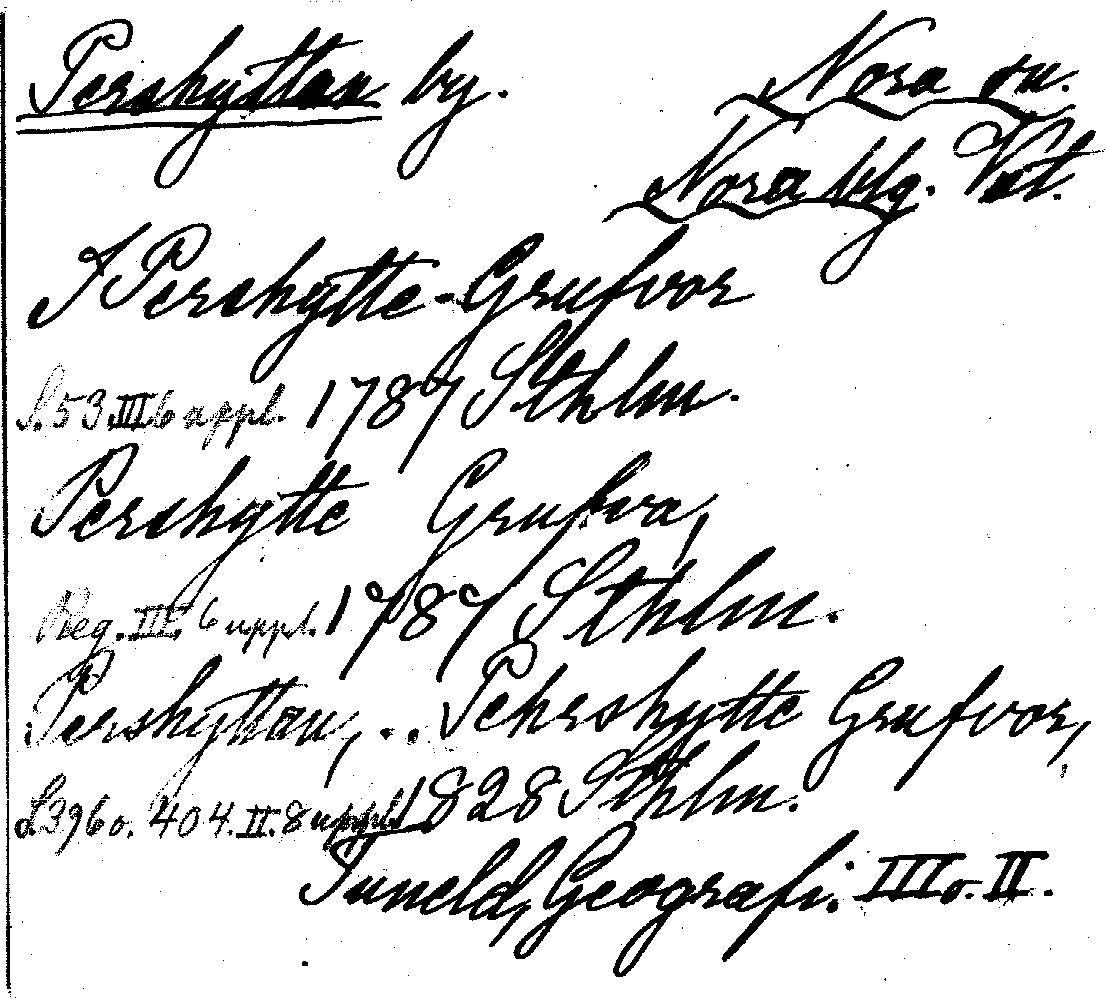 Pershyttan by.
Nora sn.
Nora blg. Vstm.
I Pershytte-Grufvor
S. 53. III. 6 uppl. 1787 Sthlm.
Pershytte Grufva,
Reg. III. 6 uppl. 1787 Sthlm.
Pershyttan, .. Pehrshytte Grufvor,
S. 396 o. 404. II. 8 uppl. 1828 Sthlm.
Tuneld, Geografi. III o. II.